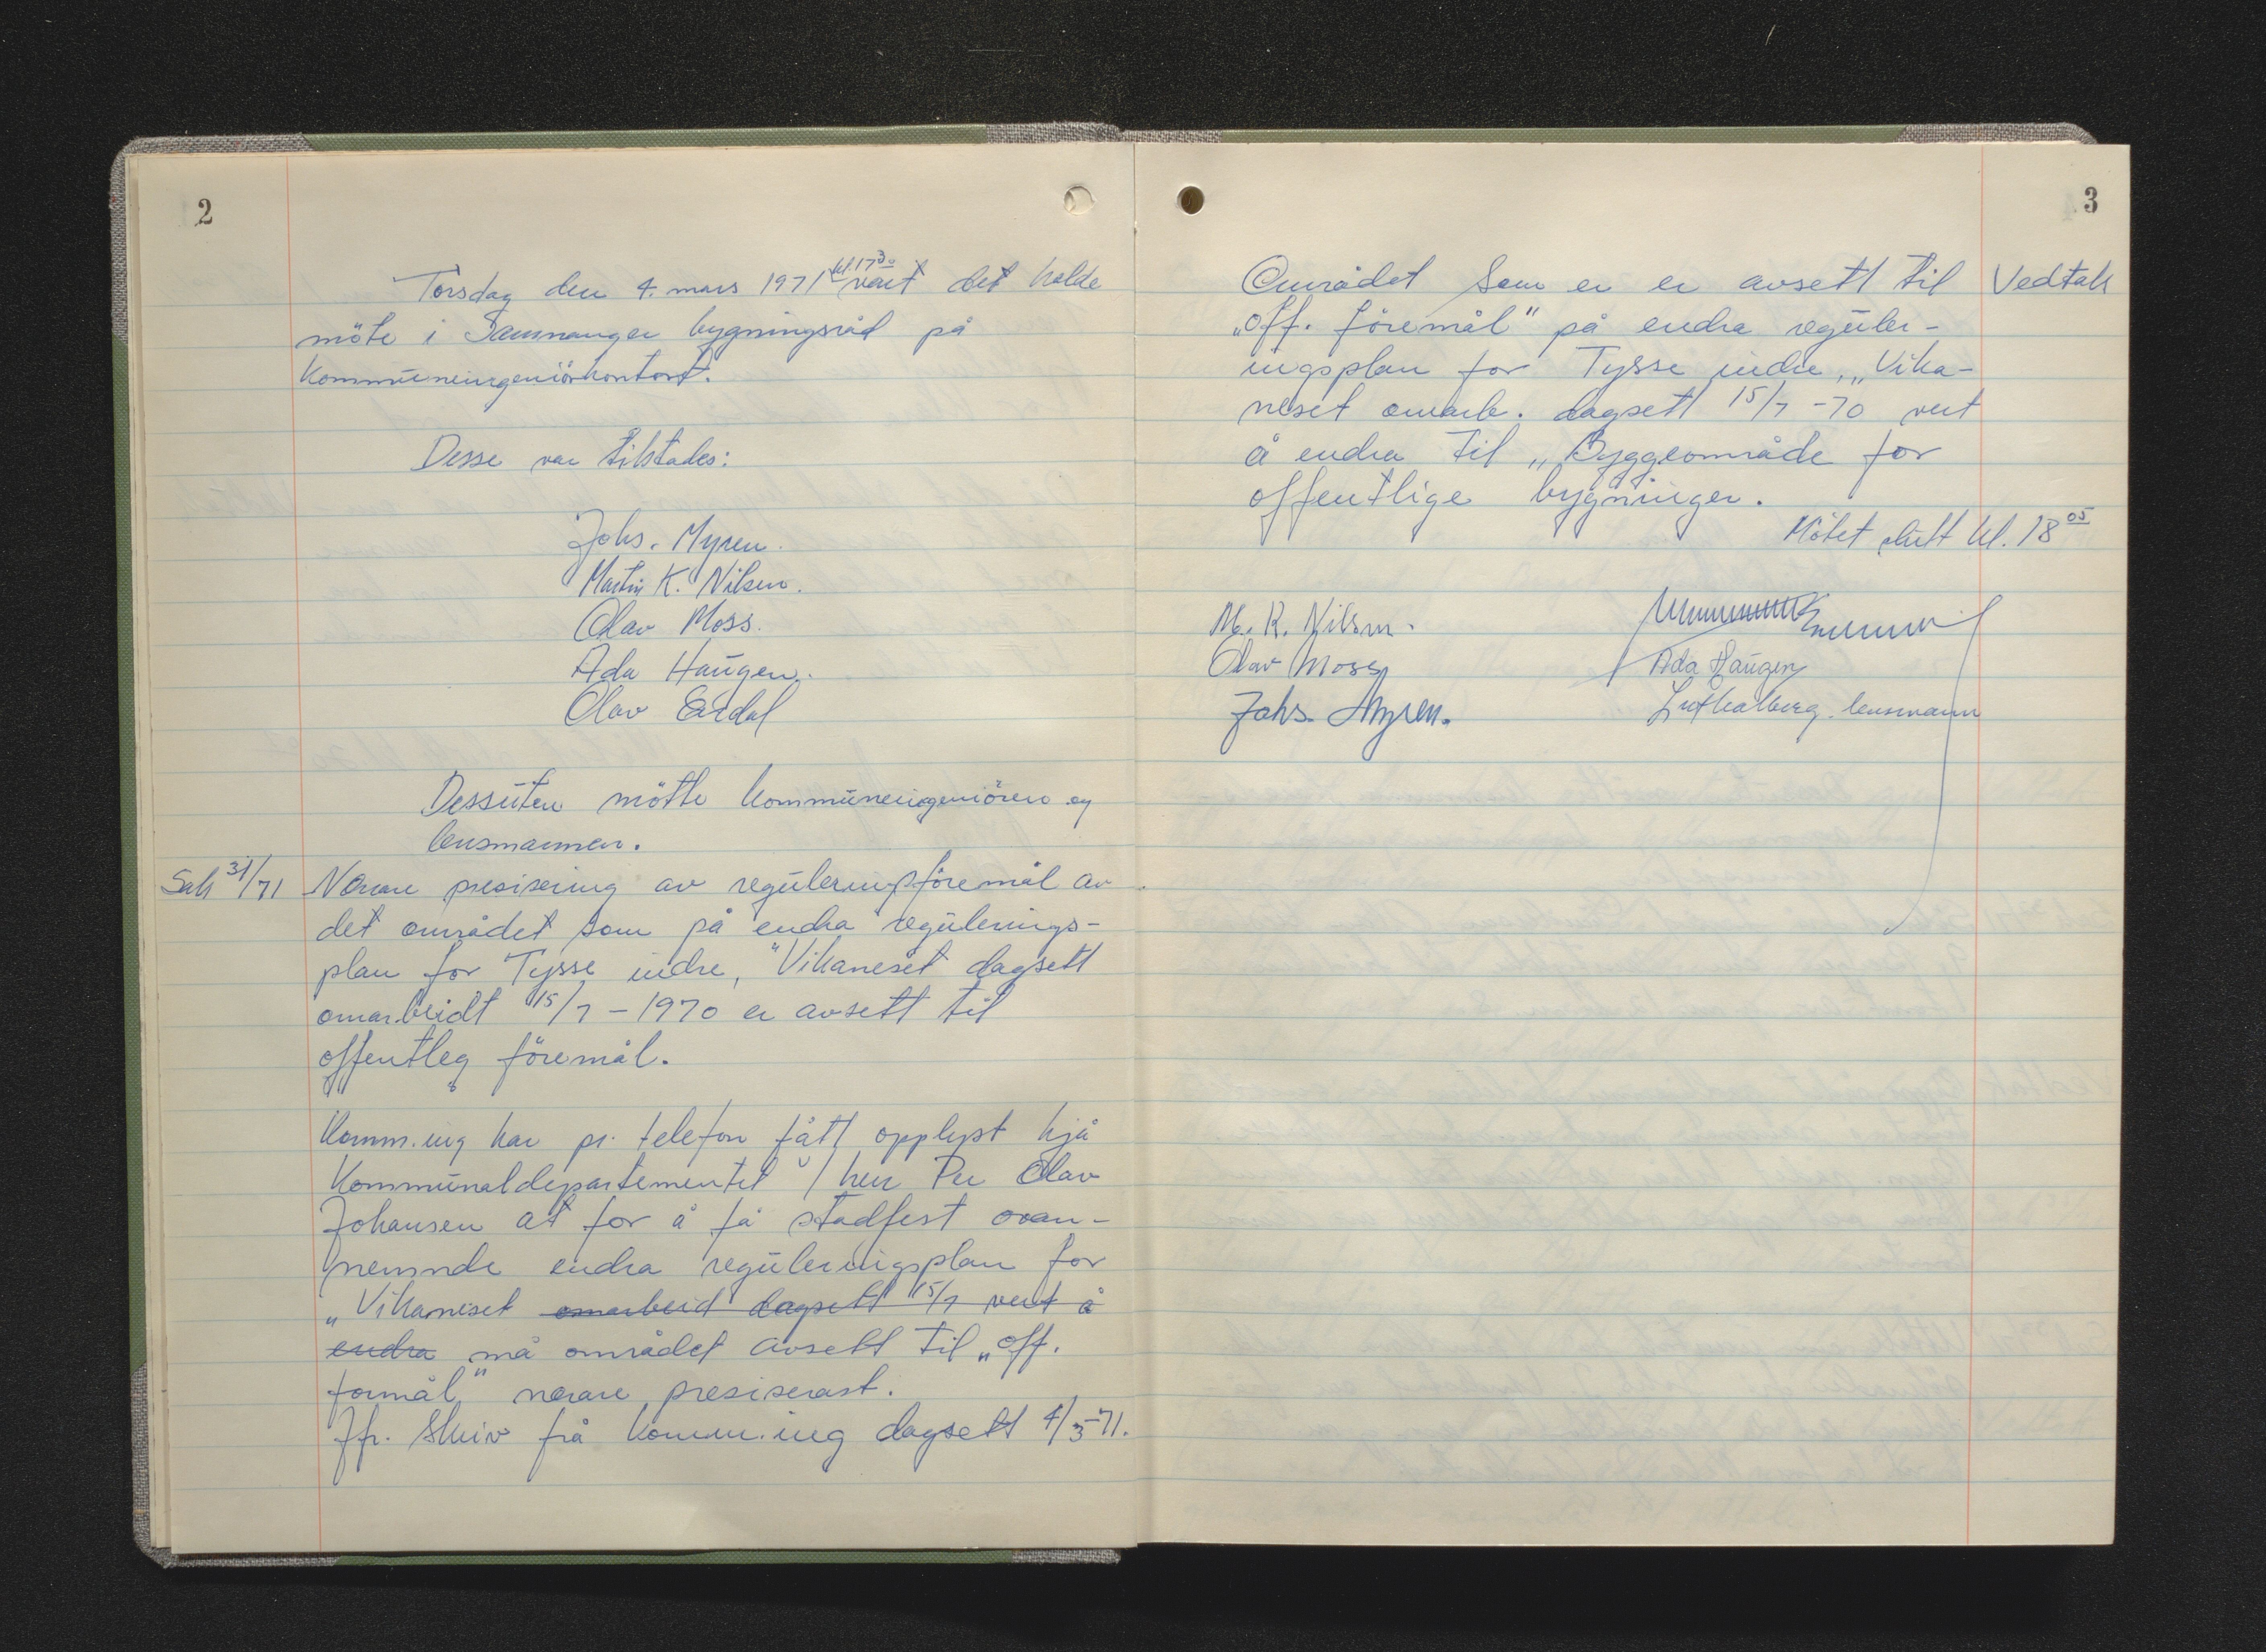 2
Torsdag den 4. mars 1971 kl. 17³⁰ vart det halde
möte i Samnanger bygningsråd på
kommuneingeniörkontort.
Desse var tilstades:
Johs. Myren.
Martin K. Nilsen.
Olav Moss.
Ada Haugen.
Olav Eidal
Dessuten mötte kommuneingeniören og
lensmannen.
Sak 31/71 Nærare presisering av reguleringsföremål av
det området som på endra regulerings-
plan for Tysse indre, "Vikaneset dagsett
omarbeidt 15/7 - 1970 er avsett til
offentleg föremål.
Komm.ing har pr. telefon fått opplyst hjå
Kommunaldepartementet v/ herr Per Olav
Johansen at for å få stadfest ovan-
nemnde endra reguleringsplan for
„Vikaneset omarbeid dagsett 15/7 vert å
endra må området avsett til „off.
formål" nærare presiserast.
Jfr. skriv frå komm.ing dagsett 4/3-71.
3
Området som er er avsett til Vedtak
„off. föremål" på endra reguler-
ingsplan for Tysse indre, „Vika-
neset omarb. dagsett 15/7 -70 vert
å endra til „Byggeområde for
offentlige bygninger.
Mötet slutt kl. 18⁰⁵
M. K. Nilsen.
Olav Moss
Ada Haugen
Johs. Myren.
lensmann